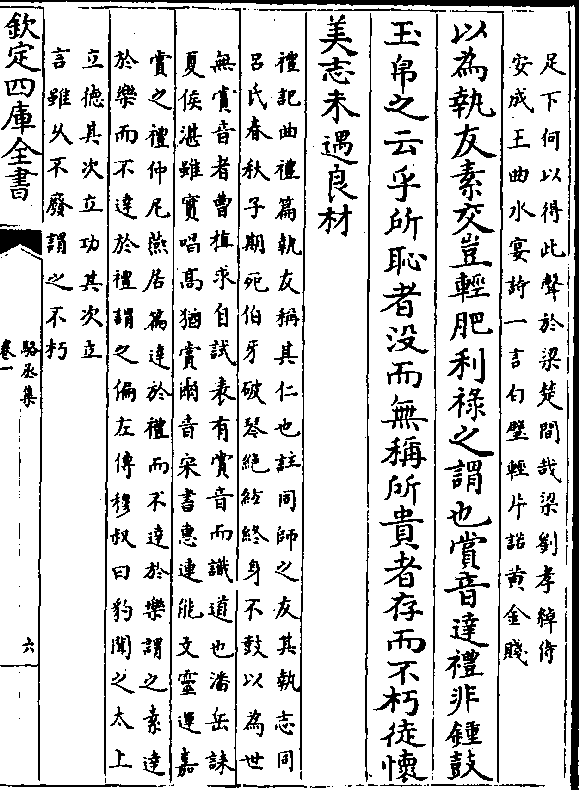 足下何以得此聲於梁楚間哉梁劉孝綽侍
安成王曲水宴詩一言白璧輕片諾黄金賤
以為執友素交豈輕肥利祿之謂也賞音達禮非鍾鼓
玉帛之云乎所恥者没而無稱所貴者存而不朽徒懷
美志未遇良材
禮記曲禮篇執友稱其仁也註同師之友其執志同
呂氏春秋子期死伯牙破琴絶絃終身不鼓以為世
無賞音者曹植求自試表有賞音而識道也潘岳誄
夏侯湛雖實唱高猶賞爾音宋書惠連能文靈運嘉
賞之禮仲尼燕居篇達於禮而不達於樂謂之素達
於樂而不達於禮謂之偏左傳穆叔曰豹聞之太上
立德其次立功其次立
言雖久不廢謂之不朽
欽定四庫全書
駱丞集
卷一
六